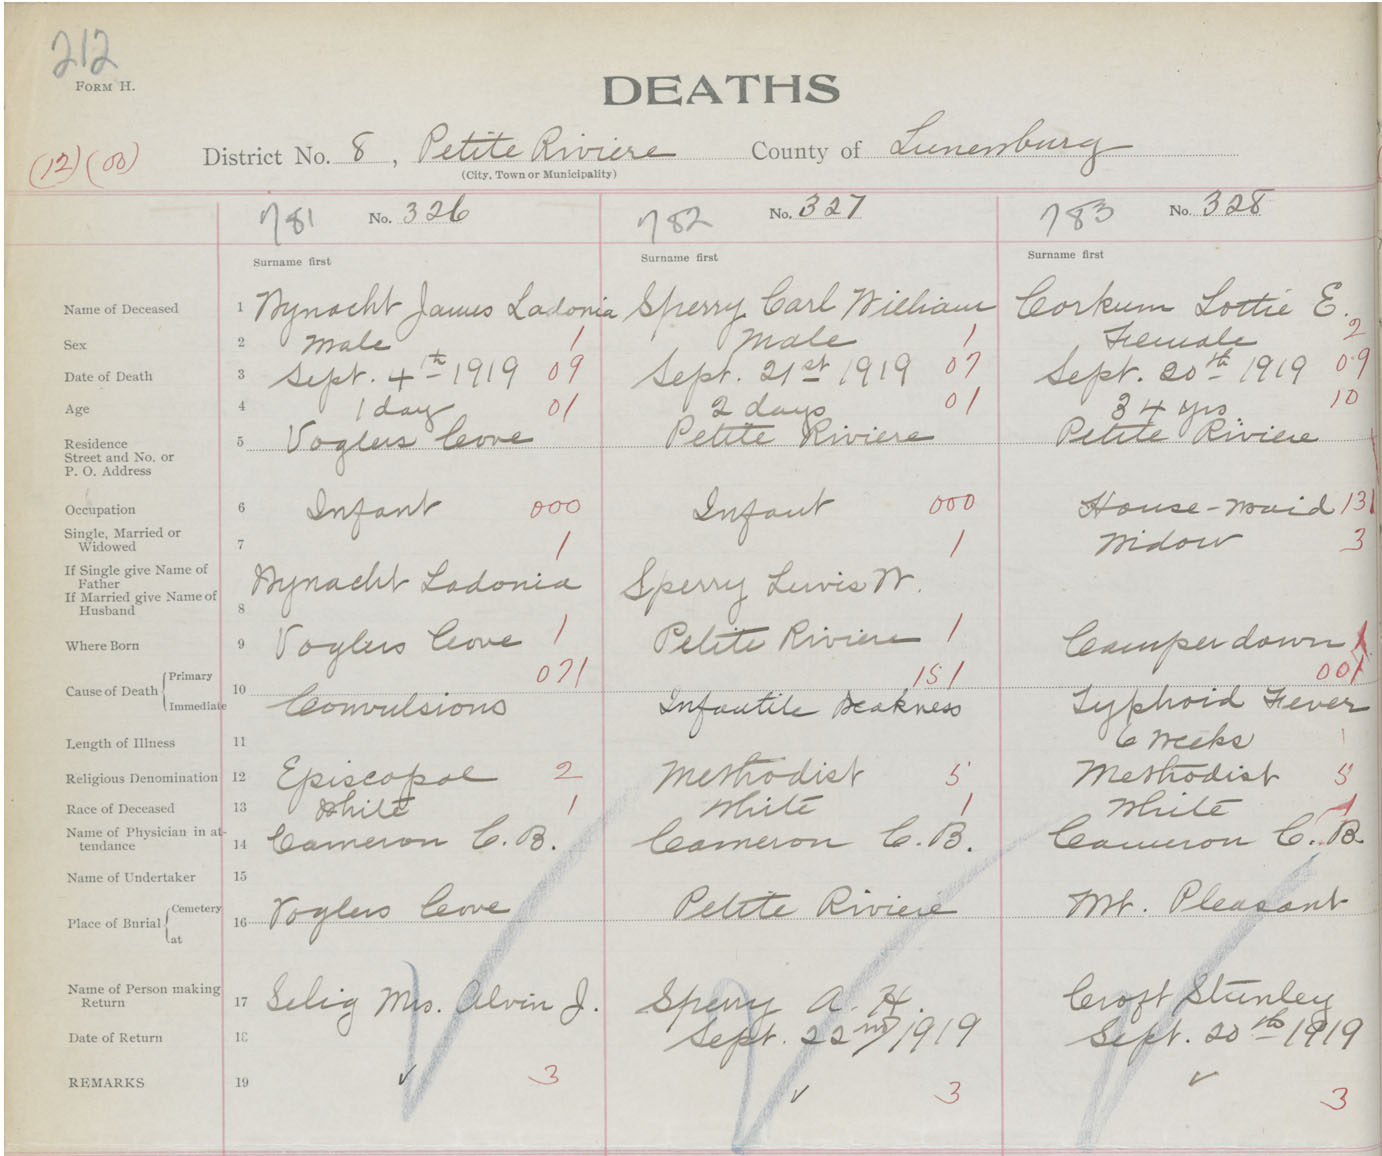 212
FORM H.
DEATHS
(12) (00)
District No. 8, Petite Riviere County of Lunenburg
(City, Town or Municipality)
781 No. 326 782 No. 327 783 No. 328
Surname first Surname first Surname first
Name of Deceased 1 Wynacht James Ladonia Sperry Carl William Corkum Lottie E.
Sex 2 Male 1 Male 1 Female 2
Date of Death 3 Sept. 4th 1919 09 Sept. 21st 1919 07 Sept. 20th 1919 09
Age 4 1 day 01 2 days 01 34 yrs. 10
Residence 5 Voglers Cove Petite Riviere Petite Riviere
Street and No. or
P. O. Address
Occupation 6 Infant 000 Infant 000 House-maid 131
Single, Married or
Widowed 7 1 1 Widow 3
If Single give Name of
Father Wynacht Ladonia Sperry Lewis W.
If Married give Name of
Husband 8
Where Born 9 Voglers Cove 1 Petite Riviere 1 Camperdown 1
071 151 001
Cause of Death { Primary
Immediate 10 Convulsions Infantile Weakness Typhoid Fever
Length of Illness 11 6 weeks 1
Religious Denomination 12 Episcopal 2 Methodist 5 Methodist 5
Race of Deceased 13 White 1 White 1 White 1
Name of Physician in at-
tendance 14 Cameron C. B. Cameron C. B. Cameron C. B.
Name of Undertaker 15
Place of Burial { Cemetery
at 16 Voglers Cove Petite Riviere Mt. Pleasant
Name of Person making
Return 17 Selig Mrs. Alvin J. Sperry A. H. Croft Stanley
Date of Return 18 Sept. 22nd 1919 Sept. 20th 1919
REMARKS 19 ✓ 3 ✓ 3 ✓ 3